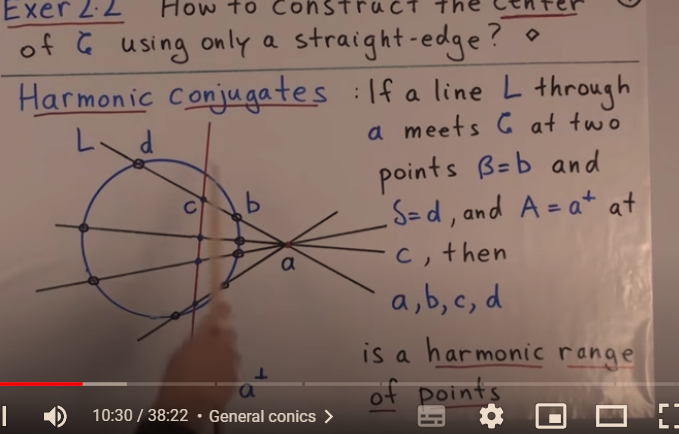 Exer 2.2 How to construct the center
of C using only a straight-edge? ◇
Harmonic conjugates : If a line L through
a meets C at two
points B=b and
S=d, and A=a⁺ at
c, then
a, b, c, d
is a harmonic range
of points
L
d
c
b
a
a⊥
10:30 / 38:22 • General conics >